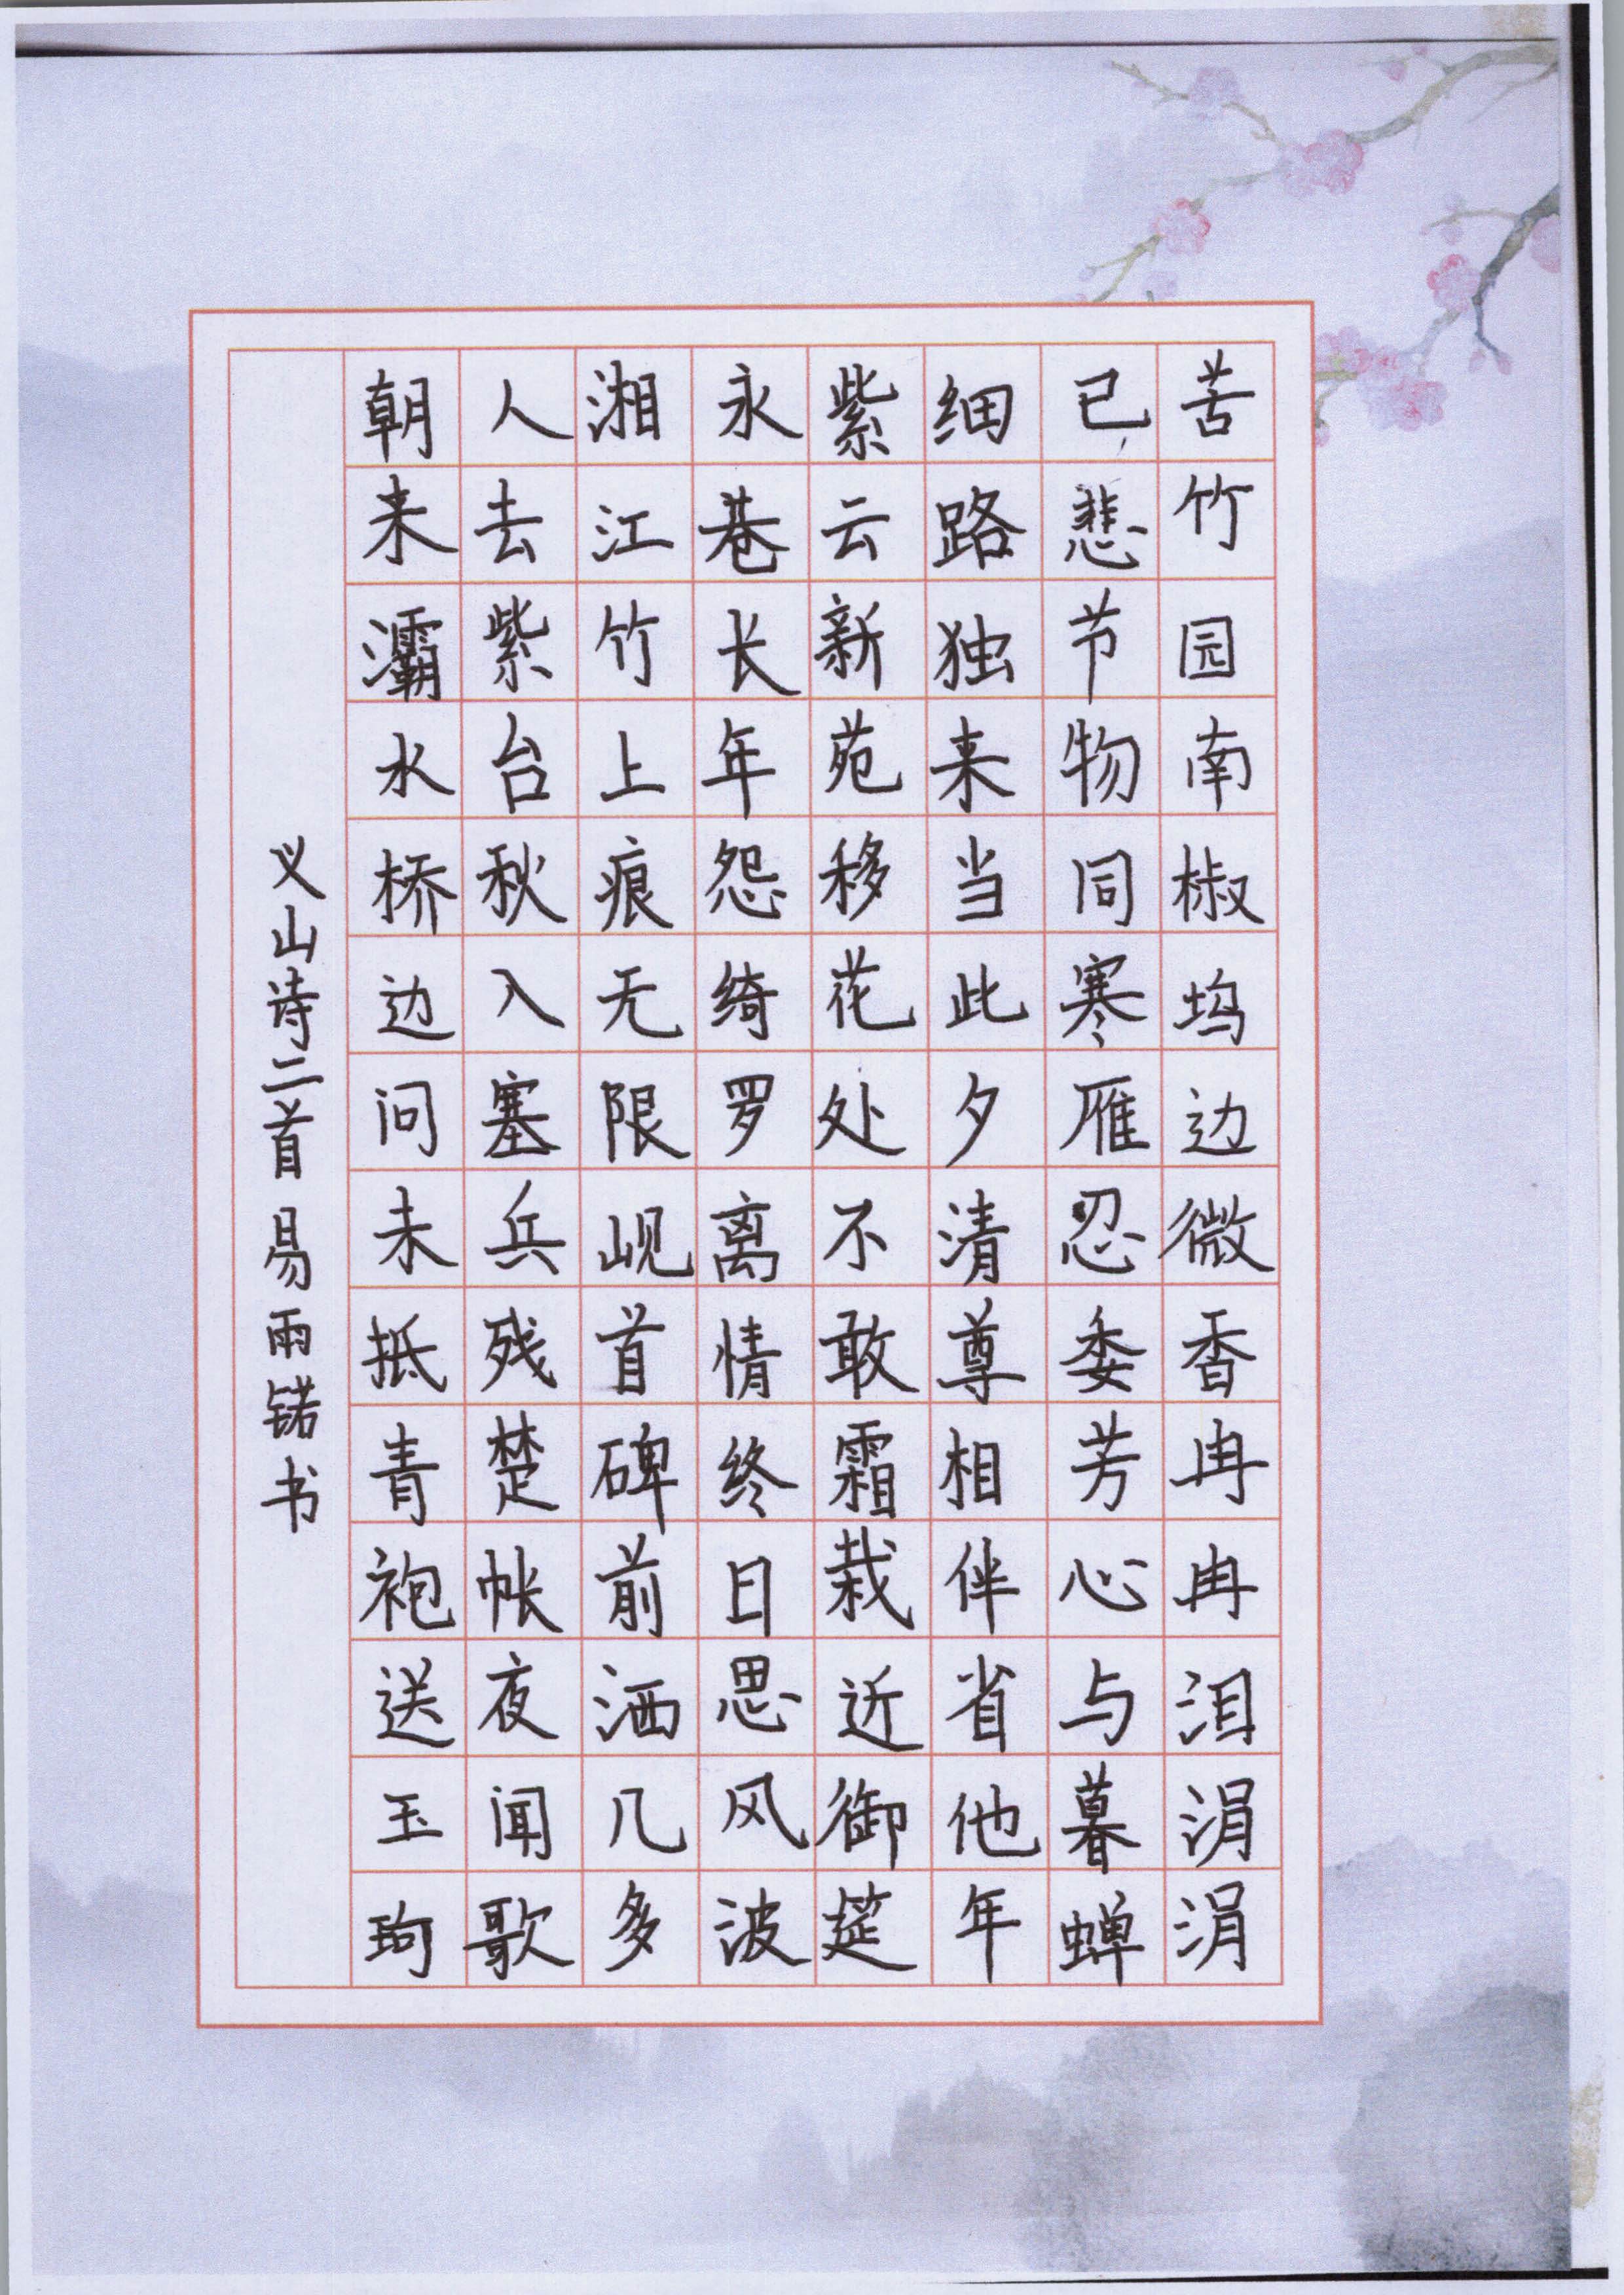 苦竹园南椒坞边微香冉冉泪涓涓
已悲节物同寒雁忍委芳心与暮蝉
细路独来当此夕清尊相伴省他年
紫云新苑移花处不敢霜栽近御筵
永巷长年怨绮罗离情终日思风波
湘江竹上痕无限岘首碑前洒几多
人去紫台秋入塞兵残楚帐夜闻歌
朝来灞水桥边问未抵青袍送玉珂
义山诗二首 易雨锘书